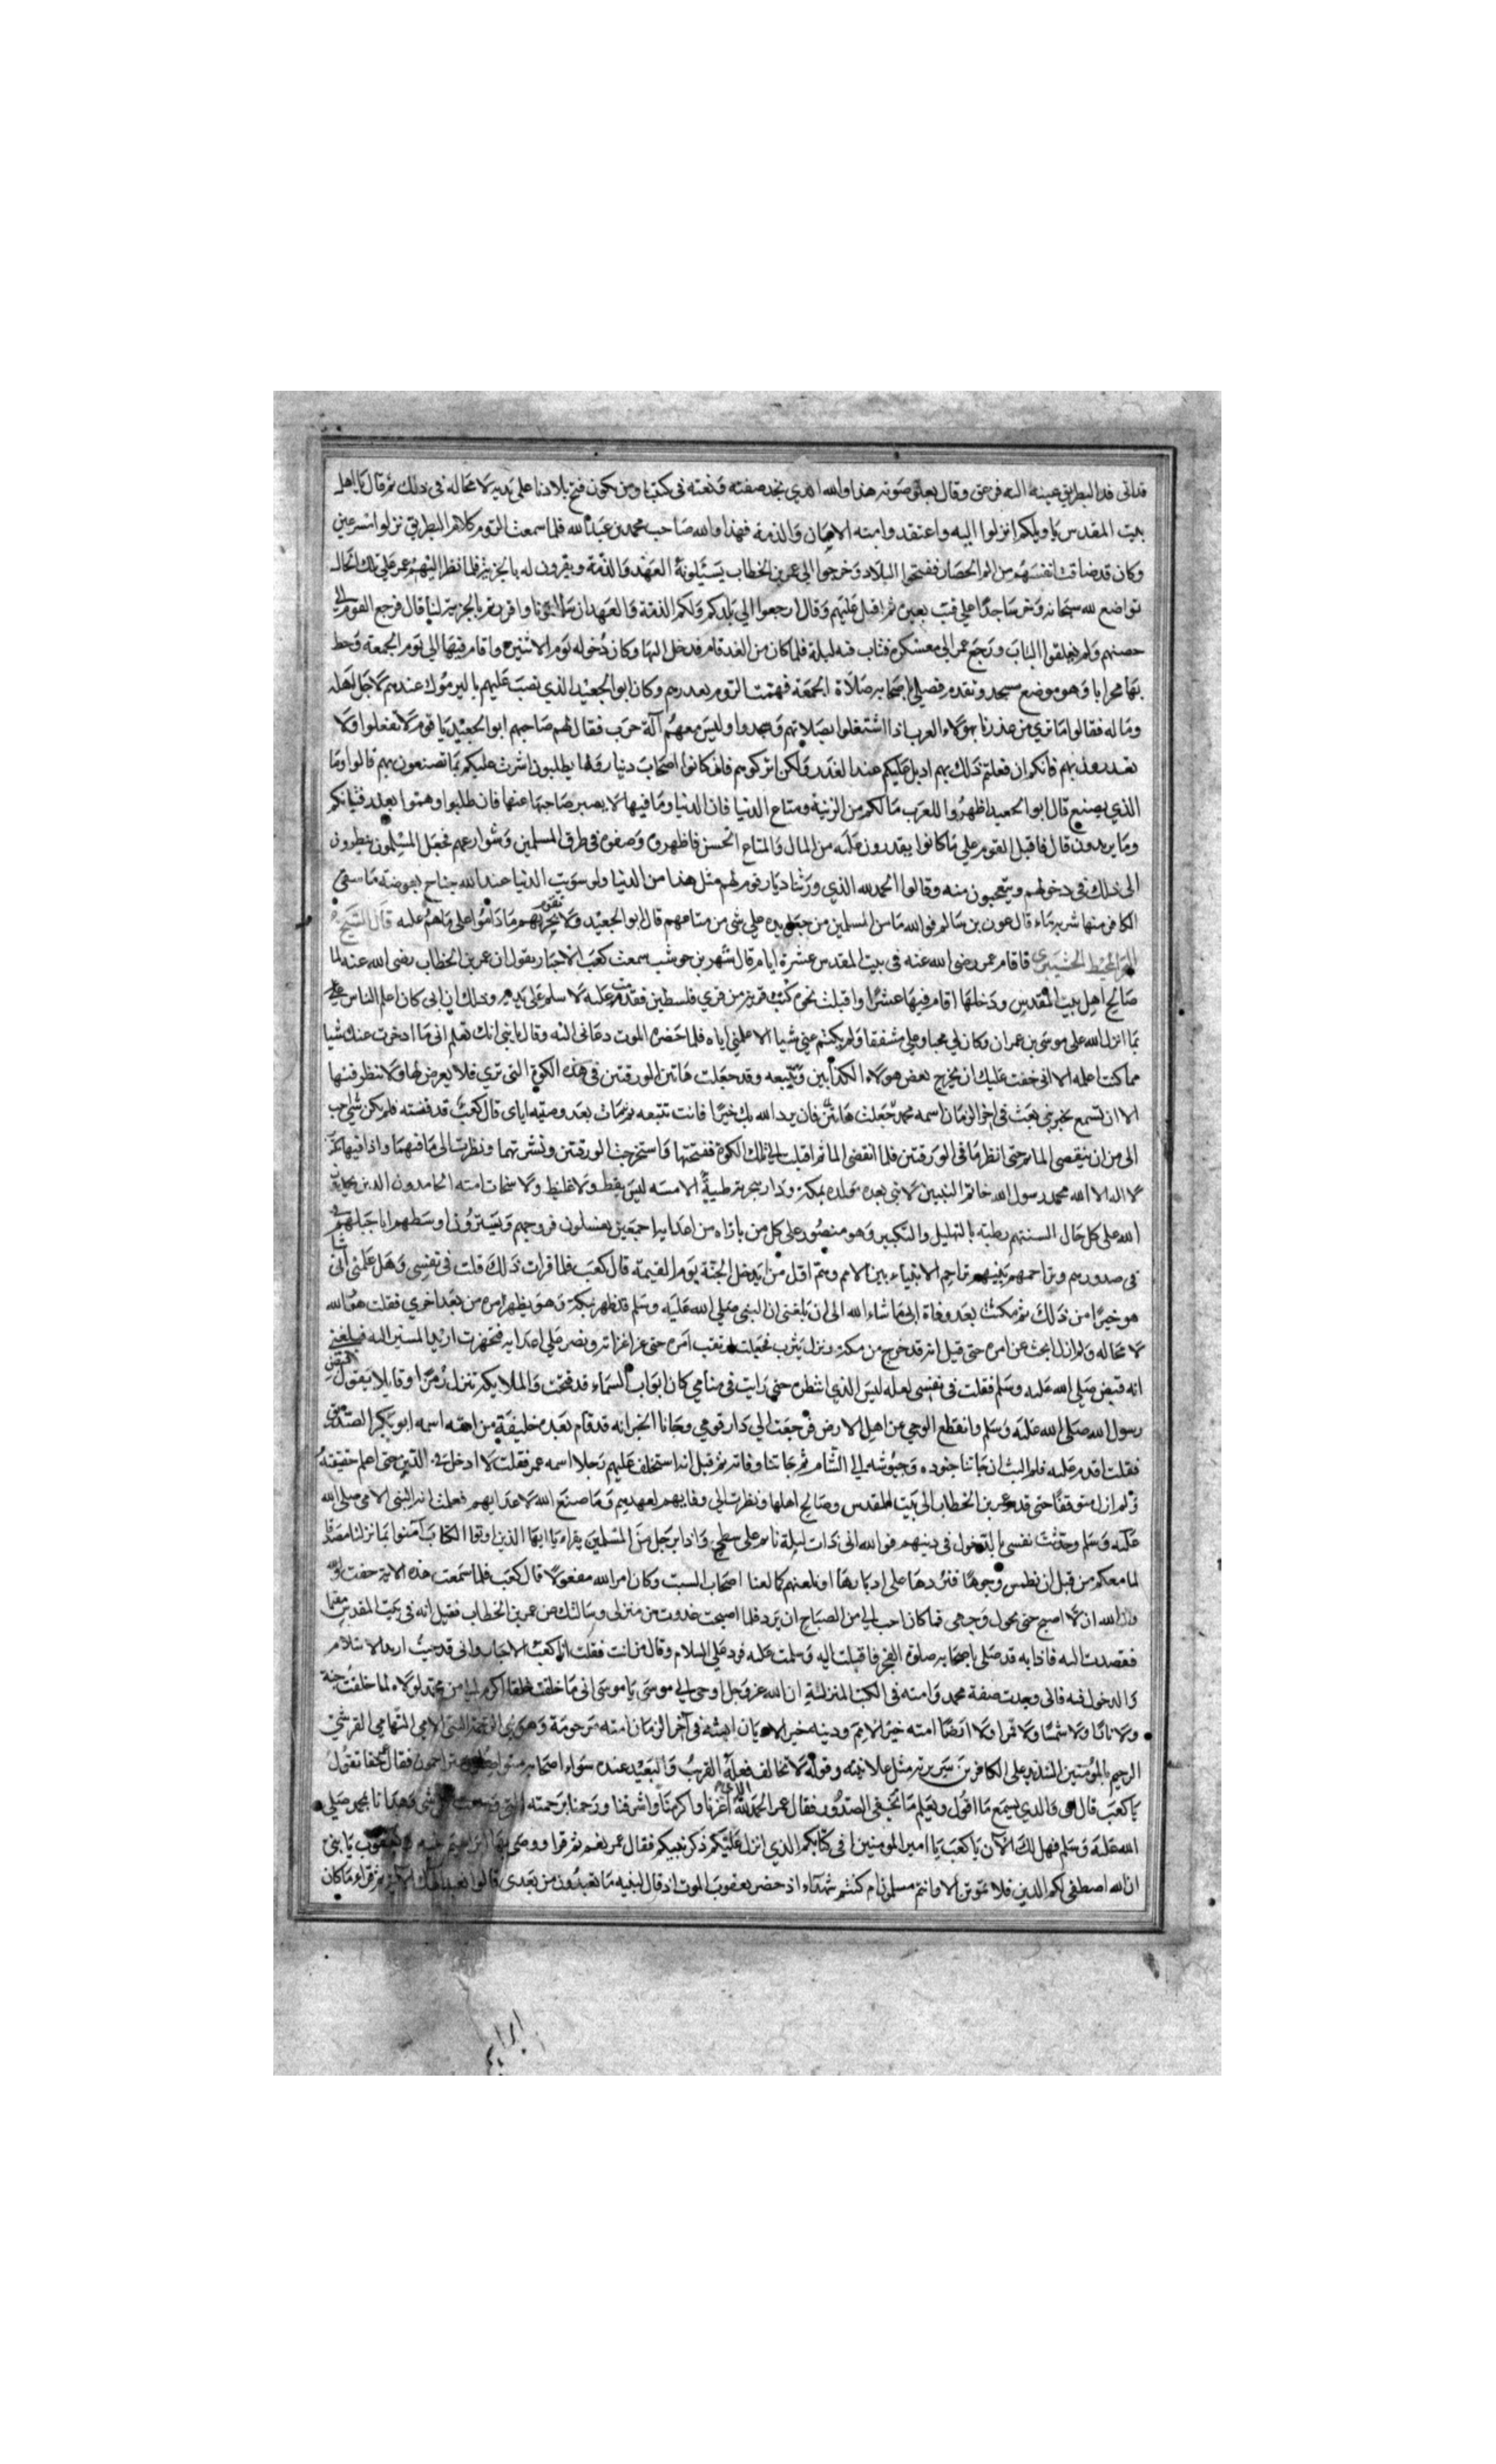 فدانى قد البطريق عينه اليه فزعق وقال بعلو صوته هذا والله الذي نجد صفته ونعته فى كتبنا ومن يكون فتح بلادنا على يديه لا محاله فى ذلك ثم قال يا اهل
بيت المقدس يا ويلكم انزلوا اليه واعتقدوا منه الامان والذمة فهذا والله صاحب محمد بن عبد الله فلما سمعت الروم كلام البطريق نزلوا مسرعين
وكان قد ضاقت انفسهم من الم الحصار ففتحوا البلاد وخرجوا الي عمر بن الخطاب يسئلونه العهد والذمة ويقرون له بالجزية فلما نظر اليهم عمر على تلك الحاله
تواضع لله سبحانه وخر ساجدا على قتب بعيره ثم اقبل عليهم وقال ارجعوا الي بلدكم ولكم الذمة والعهد ان سالتمونا واقررتم بالجزية لنا قال فرجع القوم الي
حصنهم ولم يغلقوا الباب ورجع عمر الي معسكره فبات فيه ليلة فلما كان من الغد قام فدخل اليها وكان دخوله يوم الاثنين واقام فيها الي يوم الجمعة وخط
بها محرابا وهو موضع مسجده وتقدم فصلي باصحابه صلاة الجمعة فهمت الروم بغدرهم وكان ابو الجعيد الذي نصب عليهم باليرموك عندهم لاجل اهله
وماله فقالوا ما تري من غدرنا بهولاء العرب اذا اشتغلوا بصلاتهم وسجدوا وليس معهم آلة حرب فقال لهم صاحبهم ابو الجعيد يا قوم لا تفعلوا ولا
تغدرون بهم فانكم ان فعلتم ذلك بهم اديل عليكم عند الغدر ولكن اتركوهم فان كانوا اصحاب دنيا ولها يطلبون اشرت عليكم بما تصنعون بهم قالوا وما
الذي نصنع قال ابو الجعيد اظهروا للعرب ما لكم من الزينة ومتاع الدنيا فان الدنيا وما فيها لا يصبر صاحبها عنها فان طلبوا وهموا بغدر فشانكم
وما يريدون قال فاقبل القوم علي ما كانوا يقدرون عليه من المال والمتاع الحسن فاظهروه وصفوه في طرق المسلمين وشوارعهم فجعل المسلمون ينظرون
الى ذلك في دخولهم ويتعجبون منه وقالوا الحمد لله الذي ورثنا ديار قوم لهم مثل هذا من الدنيا ولو سويت الدنيا عند الله جناح بعوضة ما سقى
الكافر منها شربة ماء قال عون بن سالم فوالله ما من المسلمين من جعل يده علي شي من متاعهم قال ابو الجعيد ولا يخربهم ما داموا على ما هم عليه قال الشيخ
فاقام عمر رضى الله عنه فى بيت المقدس عشرة ايام قال شهر بن حوشب سمعت كعب الاحبار يقول ان عمر بن الخطاب رضى الله عنه لما
صالح اهل بيت المقدس ودخلها اقام فيها عشرا واقبلت نحوه كنت فى قرية من قري فلسطين فقدمت عليه لا سلم على يديه وذلك ان ابى كان اعلم الناس
بما انزل الله على موسى بن عمران وكان لي محبا وعلي مشفقا ولم يكتم عني شيا الا علمنى اياه فلما حضره الموت دعانى اليه وقال يا بني انك تعلم انى ما ادخرت عنك شيا
مما كنت اعلمه الا انى خفت عليك ان يخرج بعض هولاء الكذابين وتتبعه وقد جعلت هاتين الورقتين فى هذه الكوة التى تري فلا تعرض لها ولا تنظر فيها
الا ان تسمع بخبر نبي يبعث فى اخر الزمان اسمه محمد فان يرد الله بك خيرا فانت تتبعه ثم مات بعد وصيته اياى قال كعب قد فنسته فلم يكن شي احب
الى من ان ينقضى الماتم حتى انظر ما فى الورقتين فلما انقضى الماتم اقبلت الي تلك الكوة ففتحتها واستخرجت الورقتين ونشرتهما ونظرت الى ما فيهما واذا فيها
لا اله الا الله محمد رسول الله خاتم النبيين لا نبى بعده مولده بمكة ودار هجرته طيبة الامنه ليس بفظ ولا غليظ ولا سخاب امته الحامدون الذين يحمدون
الله على كل حال السنتهم رطبة بالتهليل والتكبير وهو منصور على كل من ناواه من اعدايه اجمعين يغسلون فروجهم ويسترون اوسطهم اناجيلهم
فى صدورهم وتراحمهم بينهم تراحم الانبياء بين الامم وهم اول من يدخل الجنة يوم القيمة قال كعب فلما قرات ذلك قلت فى نفسى وهل علمنى ابى شيا
هو خيرا من ذلك ثم مكثت بعد وفاة ابى ما شاء الله الى ان بلغنى ان النبى صلي الله عليه وسلم قد ظهر بمكة وهو يظهر امره من بعد اخري فقلت هو والله
لا محاله ولم ازل ابحث عن امره حتى قيل انه قد خرج من مكة ونزل يثرب فجعلت ارقب امره حتى غزا غزاته ونصر على اعدايه فتجهزت اريد المسير اليه فبلغنى
انه قبض صلى الله عليه وسلم فقلت فى نفسى لعله ليس الذي انتظره حتى رايت فى منامي كان ابواب السماء قد فتحت والملايكة تنزل زمرا وقايلا يقول قبض
رسول الله صلى الله عليه وسلم وانقطع الوحي عن اهل الارض فرجعت الي دار قومي وجانا الخبر انه قد قام بعده خليفة من امته اسمه ابو بكر الصديق
فقلت اقدم عليه فلم البث ان جاتنا جنوده وجيوشه الي الشام ثم جاتنا وفاته ثم قيل انه استخلف عليهم رجلا اسمه عمر فقلت لا ادخل فى الدين حتى اعلم حقيقة
ولم ازل متوقفا حتى قدم عمر بن الخطاب الى بيت المقدس وصالح اهلها ونظرت الي وفايهم لعهدهم وما صنع الله لاعدايهم فعلمت انه النبى الامي صلى الله
عليه وسلم وحدثت نفسى بالدخول فى دينهم فوالله انى ذات ليلة نايم على سطحي واذا برجل من المسلمين يقراء يا ايها الذين اوتوا الكتاب آمنوا بما نزلنا مصدقا
لما معكم من قبل ان نطمس وجوها فنردها على ادبارها او نلعنهم كما لعنا اصحاب السبت وكان امر الله مفعولا قال كعب فلما سمعت هذه الاية خفت
والله ان لا اصبح حتى يحول وجهى فما كان احب الي من الصباح ان يرد فلما اصبحت غدوت من منزلى وسالت عن عمر بن الخطاب فقيل انه فى بيت المقدس
فقصدت اليه فاذا به قد صلى باصحابه صلوة الفجر فاقبلت اليه وسلمت عليه فرد علي السلام وقال من انت فقلت انا كعب الاحبار وانى قد جيت اريد الاسلام
والدخول فيه فانى وجدت صفة محمد وامته فى الكتب المنزلة ان الله عز وجل اوحى الي موسى يا موسى انى ما خلقت خلقا اكرم علي من محمد لولاه لما خلقت جنة
ولا نارا ولا شمسا ولا قمرا ولا ارضا امته خير الامم ودينه خير الاديان ابعثه فى آخر الزمان امته مرحومة وهو نبى الرحمة النبى الامي التهامي القرشي
الرحيم بالمومنين الشديد على الكافرين سريرته مثل علانيته وقوله لا تخالف فعله القريب والبعيد عنده سواء اصحابه متراحمون فقال احقا تقول
يا كعب قال اي والذي يسمع ما اقول ويعلم ما تخفى الصدور فقال عمر الحمد لله الذي اعزنا واكرمنا واشرفنا ورحمنا برحمته التى وسعت كل شى وهدانا بمحمد صلي
الله عليه وسلم فهل لك الان يا كعب يا امير المومنين افى كتابكم الذي انزل عليكم ذكر نبيكم فقال عمر نعم ثم قرا ووصى بها ابراهيم بنيه ويعقوب يا بني
ان الله اصطفى لكم الدين فلا تموتن الا وانتم مسلمون ام كنتم شهداء اذ حضر يعقوب الموت اذ قال لبنيه ما تعبدون من بعدى قالوا نعبد الهك ثم قراء ما كان